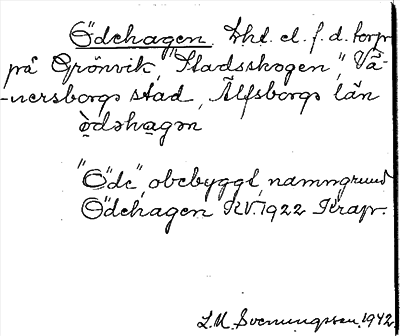 Ödehagen. Lht. el. f. d. torp
på Grönvik, "Stadsskogen", Vä-
-nersborgs stad, Älfsborgs län
ö̀dəhagən
"Öde", obebyggt, namngrund
Ödehagen RV. 1922 Krapr.
L.M. Svenungsson, 1942.